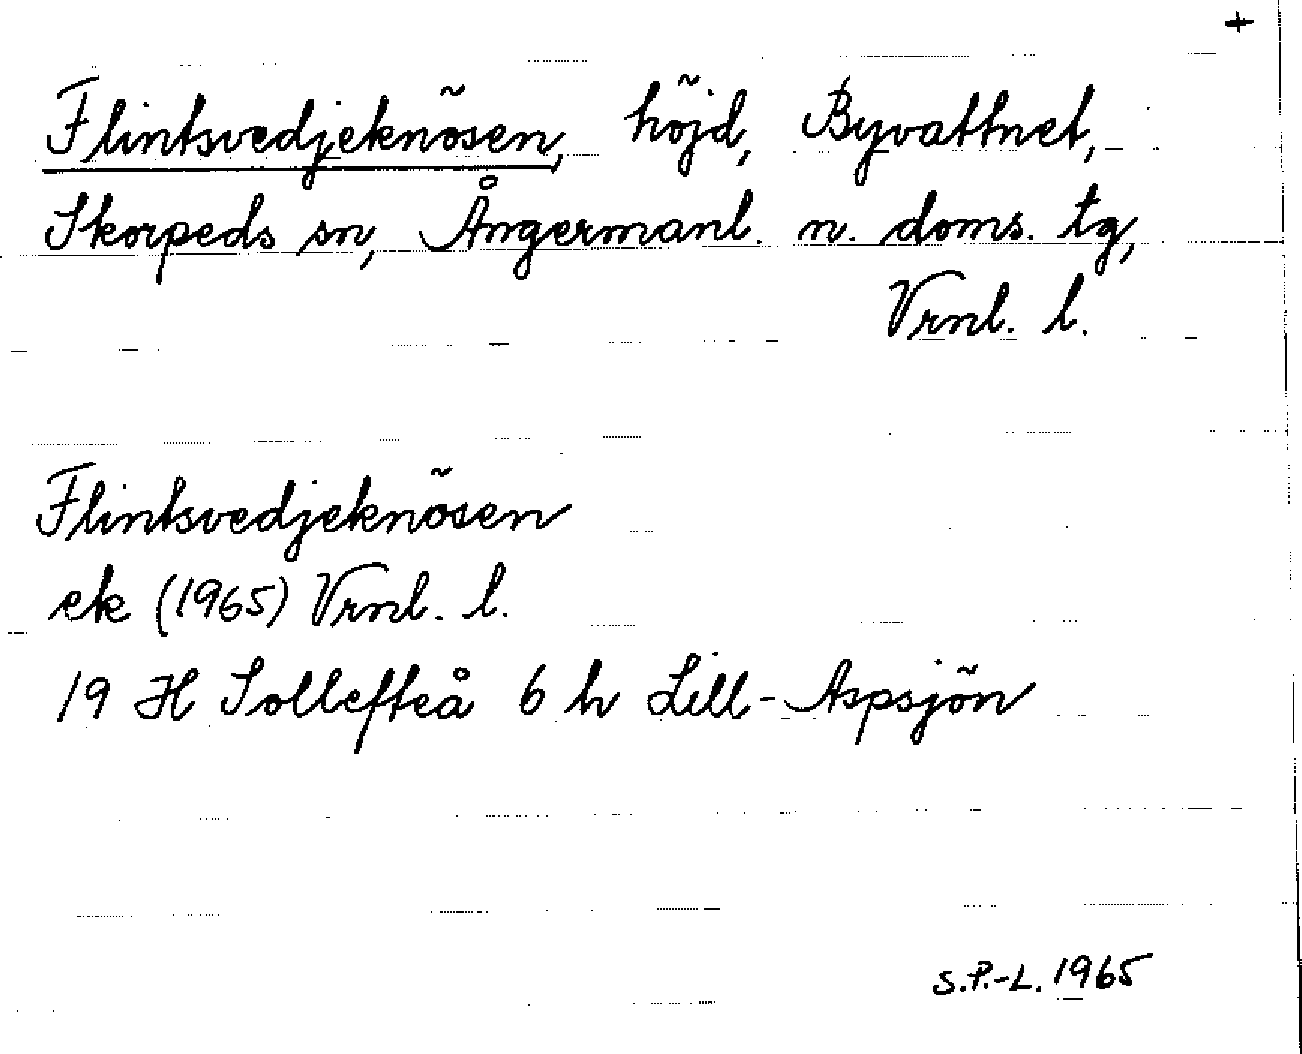 +
Flintsvedjeknösen, höjd, Byvattnet,
Skorpeds sn, Ångermanl. n. doms. tg,
Vrnl. l.
Flintsvedjeknösen
ek (1965) Vrnl. l.
19 H Sollefteå 6 h Lill-Aspsjön
S.P.-L. 1965